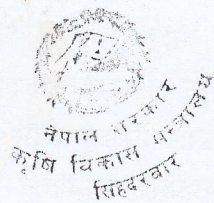 नेपाल सरकार
कृषि विकास मन्त्रालय
सिंहदरवार